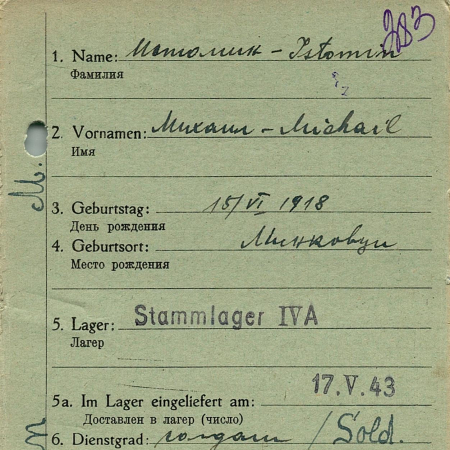 383
1. Name: Истомин - Istomin
Фамилия
2. Vornamen: Михаил - Michail
Имя
3. Geburtstag: 15/VI 1918
День рождения
4. Geburtsort:
Место рождения
5. Lager: Stammlager IVA
Лагер
17.V.43
5a. Im Lager eingeliefert am:
Доставлен в лагер (число)
6. Dienstgrad: солдат / Sold.